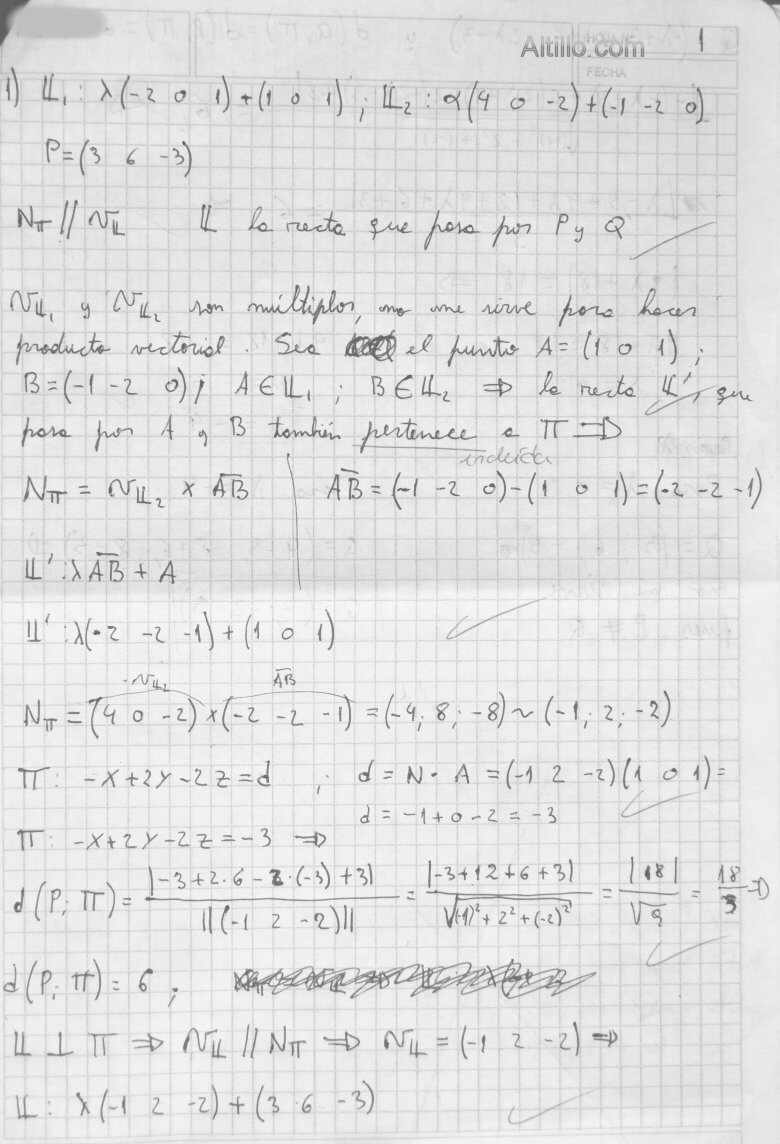 Altillo.com
1
FECHA
1) 𝕃₁: λ(-2 0 1)+(1 0 1) ; 𝕃₂: α(4 0 -2)+(-1 -2 0)
P=(3 6 -3)
Nπ // v𝕃 𝕃 la recta que pasa por P y Q
v𝕃₁ y v𝕃₂ son múltiplos, no me sirve para hacer
producto vectorial. Sea el punto A=(1 0 1) ;
B=(-1 -2 0) ; A∈𝕃₁ ; B∈𝕃₂ ⇒ la recta 𝕃', que
pasa por A y B también pertenece a π ⇒
incluida
Nπ = v𝕃₂ x AB | AB = (-1 -2 0)-(1 0 1)=(-2 -2 -1)
𝕃': λAB + A
𝕃': λ(-2 -2 -1)+(1 0 1)
v𝕃₂ AB
Nπ = (4 0 -2)x(-2 -2 -1) = (-4; 8; -8) ~ (-1; 2; -2)
π: -x+2y-2z=d ; d = N·A = (-1 2 -2)(1 0 1)=
d = -1+0-2 = -3
π: -x+2y-2z=-3 ⇒
d(P; π) = |-3+2·6-2·(-3)+3| / ||(-1 2 -2)|| = |-3+12+6+3| / √((-1)²+2²+(-2)²) = |18| / √9 = 18/3 ⇒
d(P; π) = 6 ;
𝕃 ⊥ π ⇒ v𝕃 // Nπ ⇒ v𝕃 = (-1 2 -2) ⇒
𝕃: λ(-1 2 -2)+(3 6 -3)